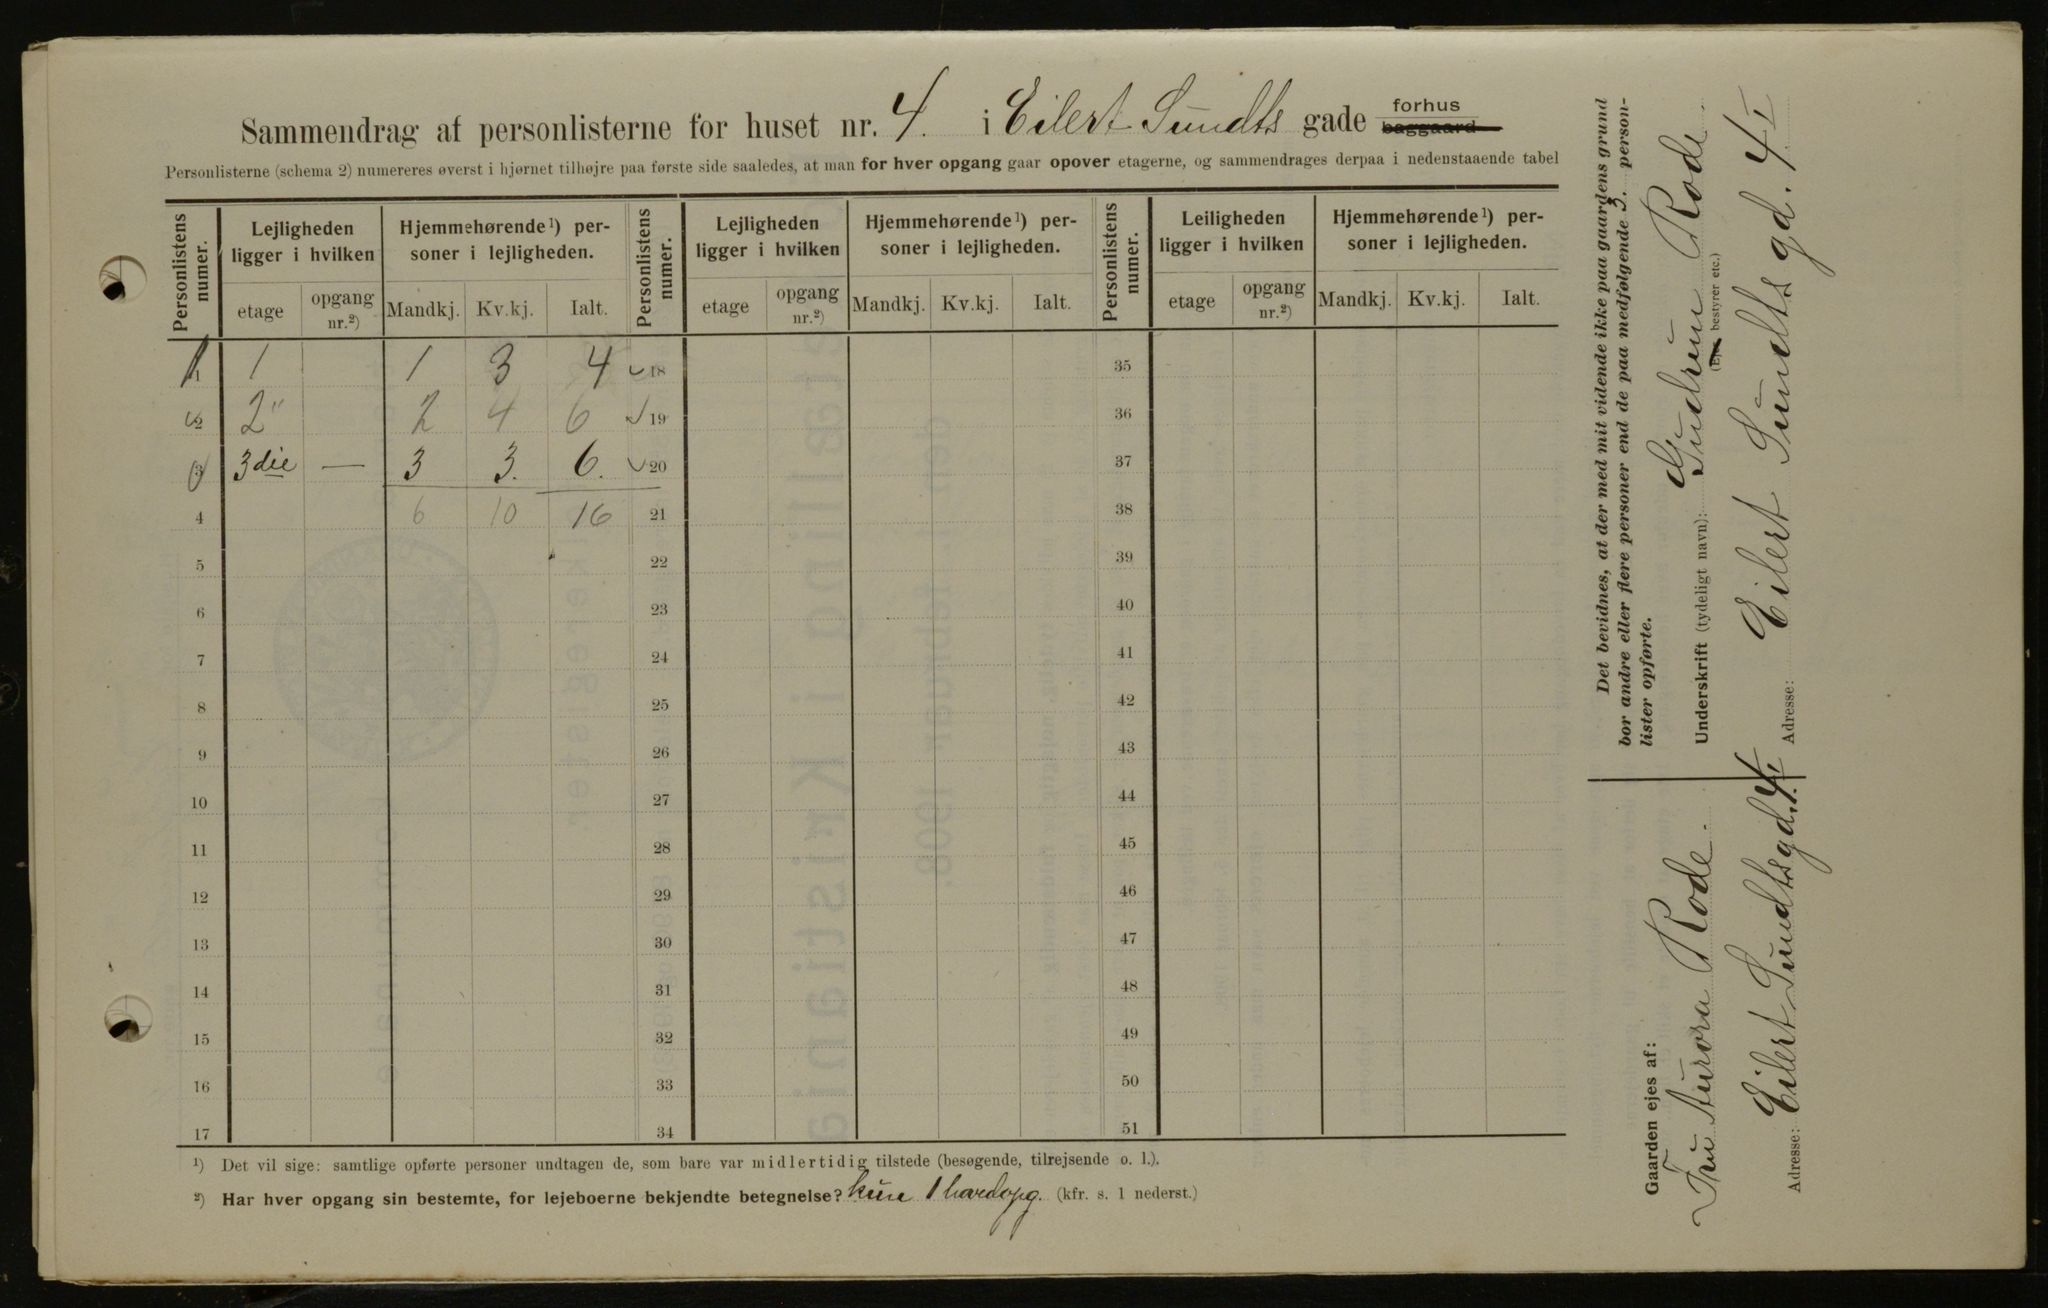 Sammendrag af personlisterne for huset nr. 4. i Eilert Sundts gade forhus baggaard
Personlisterne (schema 2) numereres øverst i hjørnet tilhøjre paa første side saaledes, at man for hver opgang gaar opover etagerne, og sammendrages derpaa i nedenstaaende tabel
Personlistens numer. Lejligheden ligger i hvilken Hjemmehørende ¹) personer i lejligheden. Personlistens numer. Lejligheden ligger i hvilken Hjemmehørende ¹) personer i lejligheden. Personlistens numer. Leiligheden ligger i hvilken Hjemmehørende ¹) personer i lejligheden.
etage opgang nr.²) Mandkj. Kv.kj. Ialt. etage opgang nr.²) Mandkj. Kv.kj. Ialt. etage opgang nr.²) Mandkj. Kv.kj. Ialt.
1 1 1 3 4 18 35
2 2" 2 4 6 19 36
3 3die — 3 3. 6. 20 37
4 6 10 16 21 38
5 22 39
6 23 40
7 24 41
8 25 42
9 26 43
10 27 44
11 28 45
12 29 46
13 30 47
14 31 48
15 32 49
16 33 50
17 34 51
¹) Det vil sige: samtlige opførte personer undtagen de, som bare var midlertidig tilstede (besøgende, tilrejsende o. l.).
²) Har hver opgang sin bestemte, for lejeboerne bekjendte betegnelse? kun 1 hovedopg. (kfr. s. 1 nederst.)
Det bevidnes, at der med mit vidende ikke paa gaardens grund
bor andre eller flere personer end de paa medfølgende 3. person-
lister opførte.
Underskrift (tydeligt navn): Gudrun Rode
(Ejer, bestyrer etc.)
Adresse: Eilert Sundts gd. 4 I
Gaarden ejes af:
Fru Aurora Rode.
Adresse: Eilert Sundtsgd. 4 I